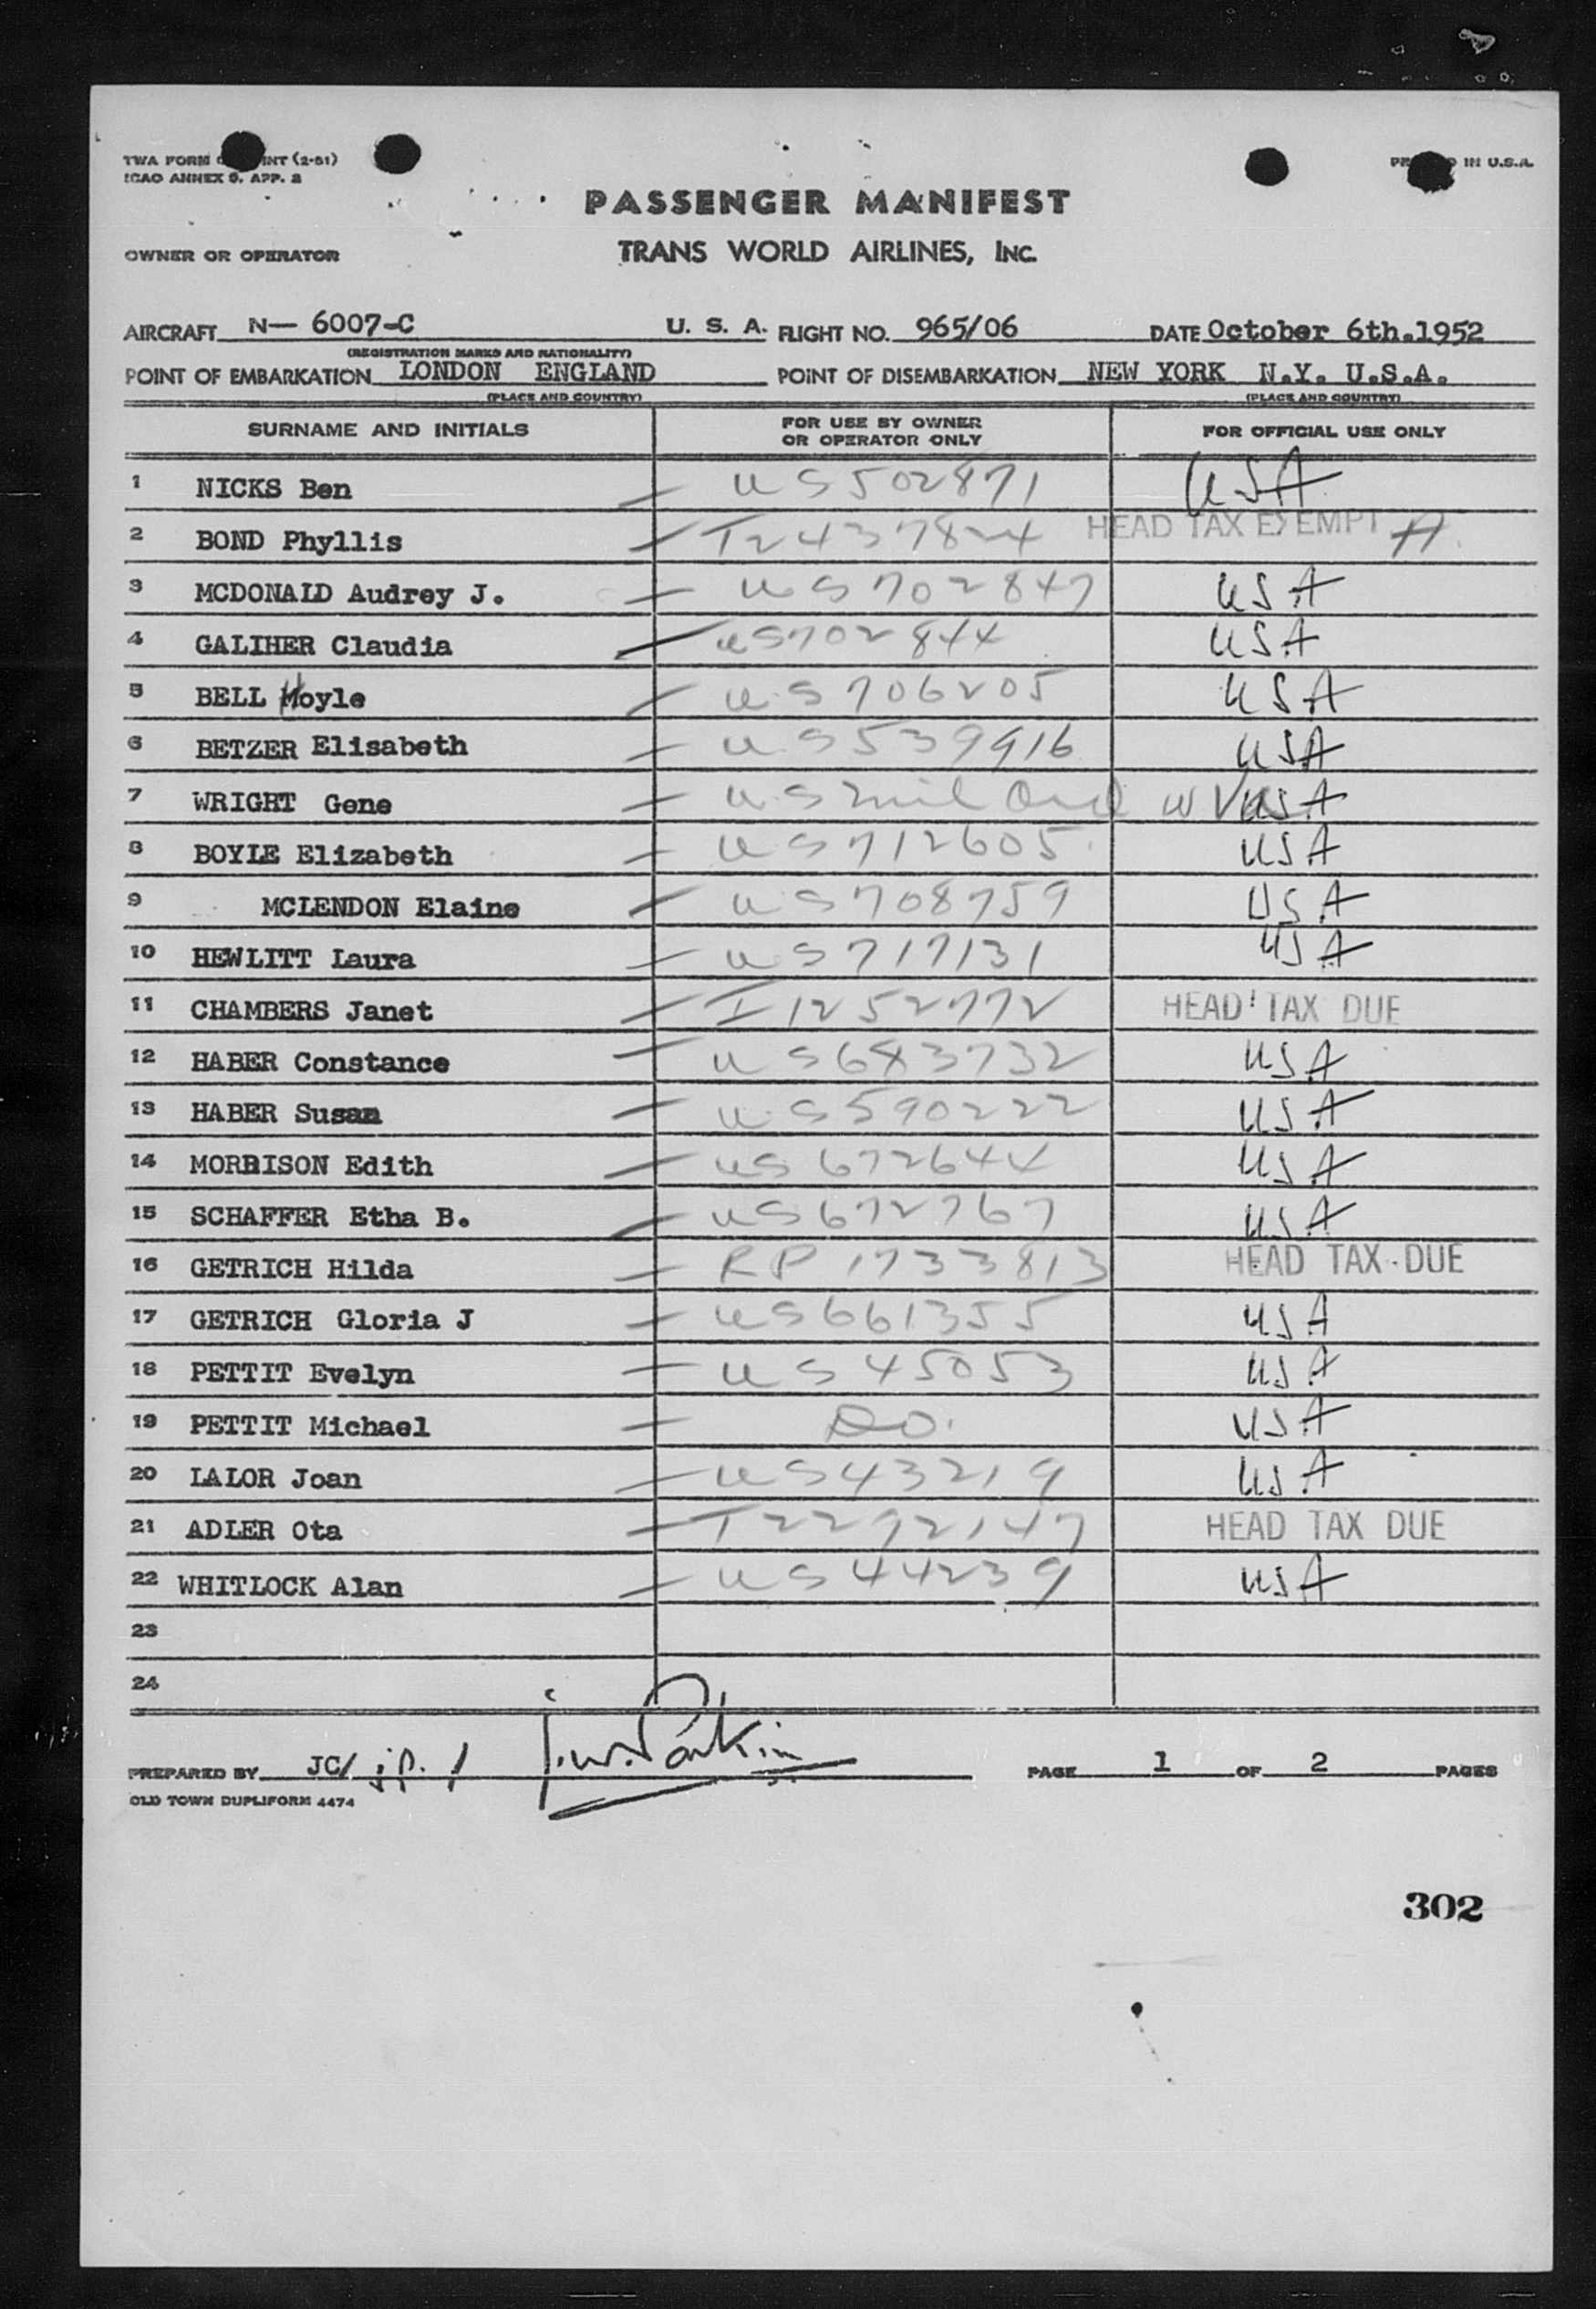 TWA FORM INT (2-51)
ICAO ANNEX 9, APP. 2
IN U.S.A.
PASSENGER MANIFEST
OWNER OR OPERATOR TRANS WORLD AIRLINES, INC.
AIRCRAFT N— 6007-C U. S. A. FLIGHT NO. 965/06 DATE October 6th.1952
(REGISTRATION MARKS AND NATIONALITY)
POINT OF EMBARKATION LONDON ENGLAND POINT OF DISEMBARKATION NEW YORK N.Y. U.S.A.
(PLACE AND COUNTRY) (PLACE AND COUNTRY)
SURNAME AND INITIALS FOR USE BY OWNER OR OPERATOR ONLY FOR OFFICIAL USE ONLY
1 NICKS Ben US 502871 USA
2 BOND Phyllis I2437824 HEAD TAX EXEMPT A
3 MCDONALD Audrey J. US 702847 USA
4 GALIHER Claudia US702844 USA
5 BELL Hoyle US 706205 USA
6 BETZER Elisabeth US 539916 USA
7 WRIGHT Gene US mil Ord USA
8 BOYLE Elizabeth US 712605 USA
9 MCLENDON Elaine US 708759 USA
10 HEWLITT Laura US 717131 USA
11 CHAMBERS Janet I 1252772 HEAD TAX DUE
12 HABER Constance US683732 USA
13 HABER Susan US 590222 USA
14 MORRISON Edith US 672644 USA
15 SCHAFFER Etha B. US 672767 USA
16 GETRICH Hilda RP 1733813 HEAD TAX DUE
17 GETRICH Gloria J US661355 USA
18 PETTIT Evelyn US 45053 USA
19 PETTIT Michael DO. USA
20 LALOR Joan US43219 USA
21 ADLER Ota I2292147 HEAD TAX DUE
22 WHITLOCK Alan US 44239 USA
23
24
PREPARED BY JC/ jp. / J.W. Parkin PAGE 1 OF 2 PAGES
OLD TOWN DUPLIFORM 4474
302